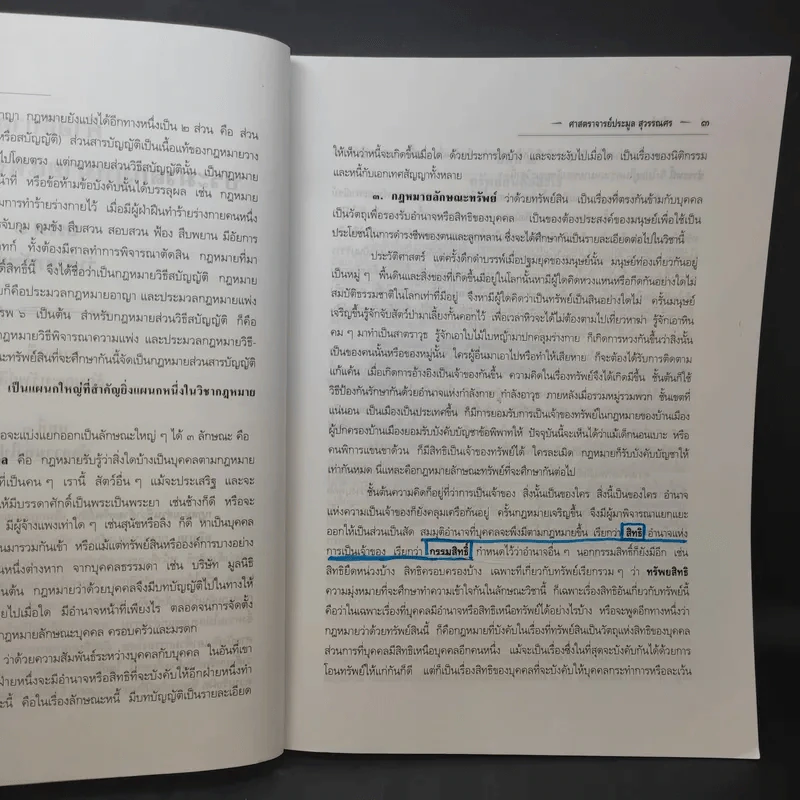 าญา กฎหมายยังแบ่งได้อีกทางหนึ่งเป็น ๒ ส่วน คือ ส่วน
หรือสบัญญัติ) ส่วนสารบัญญัติเป็นเนื้อแท้ของกฎหมายวาง
ไปโดยตรง แต่กฎหมายส่วนวิธีสบัญญัตินั้น เป็นกฎหมาย
น้าที่ หรือข้อห้ามข้อบังคับนั้นได้บรรลุผล เช่น กฎหมาย
มการทำร้ายร่างกายไว้ เมื่อมีผู้ฝ่าฝืนทำร้ายร่างกายคนหนึ่ง
จับกุม คุมขัง สืบสวน สอบสวน ฟ้อง สืบพยาน มีอัยการ
ทก์ ทั้งต้องมีศาลทำการพิจารณาตัดสิน กฎหมายที่มา
ดิ์สิทธิ์นี้ จึงได้ชื่อว่าเป็นกฎหมายวิธีสบัญญัติ กฎหมาย
ยก็คือประมวลกฎหมายอาญา และประมวลกฎหมายแพ่ง
รรพ ๖ เป็นต้น สำหรับกฎหมายส่วนวิธีสบัญญัติ ก็คือ
ฎหมายวิธีพิจารณาความแพ่ง และประมวลกฎหมายวิธี-
ะทรัพย์สินที่จะศึกษากันนี้จัดเป็นกฎหมายส่วนสารบัญญัติ
เป็นแผนกใหญ่ที่สำคัญยิ่งแผนกหนึ่งในวิชากฎหมาย
อจะแบ่งแยกออกเป็นลักษณะใหญ่ ๆ ได้ ๓ ลักษณะ คือ
คล คือ กฎหมายรับรู้ว่าสิ่งใดบ้างเป็นบุคคลตามกฎหมาย
ที่เป็นคน ๆ เรานี้ สัตว์อื่น ๆ แม้จะประเสริฐ และจะ
ให้มีบรรดาศักดิ์เป็นพระเป็นพระยา เช่นช้างก็ดี หรือจะ
มีผู้จ้างแพงเท่าใด ๆ เช่นสุนัขหรือลิง ก็ดี หาเป็นบุคคล
นมารวมกันเข้า หรือแม้แต่ทรัพย์สินหรือองค์การบางอย่าง
หนึ่งต่างหาก จากบุคคลธรรมดา เช่น บริษัท มูลนิธิ
นต้น กฎหมายว่าด้วยบุคคลจึงมีบทบัญญัติไปในทางให้
ยไปเมื่อใด มีอำนาจหน้าที่เพียงไร ตลอดจนการจัดตั้ง
ากฎหมายลักษณะบุคคล ครอบครัวและมรดก
ว่าด้วยความสัมพันธ์ระหว่างบุคคลกับบุคคล ในอันที่เขา
ฝ่ายหนึ่งจะมีอำนาจหรือสิทธิที่จะบังคับให้อีกฝ่ายหนึ่งทำ
ะนี้ คือในเรื่องลักษณะหนี้ มีบทบัญญัติเป็นรายละเอียด
ศาสตราจารย์ประมูล สุวรรณศร ๓
ให้เห็นว่าหนี้จะเกิดขึ้นเมื่อใด ด้วยประการใดบ้าง และจะระงับไปเมื่อใด เป็นเรื่องของนิติกรรม
และหนี้กับเอกเทศสัญญาทั้งหลาย
๓. กฎหมายลักษณะทรัพย์ ว่าด้วยทรัพย์สิน เป็นเรื่องที่ตรงกันข้ามกับบุคคล
เป็นวัตถุเพื่อรองรับอำนาจหรือสิทธิของบุคคล เป็นของต้องประสงค์ของมนุษย์เพื่อใช้เป็น
ประโยชน์ในการดำรงชีพของตนและลูกหลาน ซึ่งจะได้ศึกษากันเป็นรายละเอียดต่อไปในวิชานี้
ประวัติศาสตร์ แต่ครั้งดึกดำบรรพ์เมื่อปฐมยุคของมนุษย์นั้น มนุษย์ท่องเที่ยวกันอยู่
เป็นหมู่ ๆ พื้นดินและสิ่งของที่เกิดขึ้นมีอยู่ในโลกนั้นหามีผู้ใดคิดหวงแหนหรือกีดกันอย่างใดไม่
สมบัติธรรมชาติในโลกเท่าที่มีอยู่ จึงหามีผู้ใดคิดว่าเป็นทรัพย์เป็นสินอย่างใดไม่ ครั้นมนุษย์
เจริญขึ้นรู้จักจับสัตว์ป่ามาเลี้ยงกันคอกไว้ เพื่อเวลาหิวจะได้ไม่ต้องตามไปเที่ยวหาฆ่า รู้จักเอาหิน
คม ๆ มาทำเป็นสาตราวุธ รู้จักเอาใบไม้ใบหญ้ามาปกคลุมร่างกาย ก็เกิดการหวงกันขึ้นว่าสิ่งนั้น
เป็นของคนนั้นหรือของหมู่นั้น ใครผู้อื่นมาเอาไปหรือทำให้เสียหาย ก็จะต้องได้รับการติดตาม
แก้แค้น เมื่อเกิดการอ้างอิงเป็นเจ้าของกันขึ้น ความคิดในเรื่องทรัพย์จึงได้เกิดมีขึ้น ชั้นต้นก็ใช้
วิธีป้องกันรักษากันด้วยอำนาจแห่งกำลังกาย กำลังอาวุธ ภายหลังเมื่อรวมหมู่รวมพวก ขันเขตที่
แน่นอน เป็นเมืองเป็นประเทศขึ้น ก็มีการยอมรับการเป็นเจ้าของทรัพย์ในกฎหมายของบ้านเมือง
ผู้ปกครองบ้านเมืองยอมรับบังคับบัญชาข้อพิพาทให้ ปัจจุบันนี้จะเห็นได้ว่าแม้เด็กนอนเบาะ หรือ
คนพิการแขนขาด้วน ก็มีสิทธิเป็นเจ้าของทรัพย์ได้ ใครละเมิด กฎหมายก็รับบังคับบัญชาให้
เท่ากันหมด นี่แหละคือกฎหมายลักษณะทรัพย์ที่จะศึกษากันต่อไป
ชั้นต้นความคิดก็อยู่ที่ว่าการเป็นเจ้าของ สิ่งนั้นเป็นของใคร สิ่งนี้เป็นของใคร อำนาจ
แห่งความเป็นเจ้าของก็ยังคลุมเครือกันอยู่ ครั้นกฎหมายเจริญขึ้น จึงมีผู้มาพิจารณาแยกแยะ
ออกให้เป็นส่วนเป็นสัด สมมุติอำนาจที่บุคคลจะพึงมีตามกฎหมายขึ้น เรียกว่า สิทธิ อำนาจแห่ง
การเป็นเจ้าของ เรียกว่า กรรมสิทธิ์ กำหนดไว้ว่าอำนาจอื่น ๆ นอกกรรมสิทธิ์ก็ยังมีอีก เช่น
สิทธิยึดหน่วงบ้าง สิทธิครอบครองบ้าง เฉพาะที่เกี่ยวกับทรัพย์เรียกรวม ๆ ว่า ทรัพยสิทธิ
ความมุ่งหมายที่จะศึกษาทำความเข้าใจกันในลักษณะวิชานี้ ก็เฉพาะเรื่องสิทธิอันเกี่ยวกับทรัพย์นี้
คือว่าในเฉพาะเรื่องที่บุคคลมีอำนาจหรือสิทธิเหนือทรัพย์ได้อย่างไรบ้าง หรือจะพูดอีกทางหนึ่งว่า
กฎหมายว่าด้วยทรัพย์สินนี้ ก็คือกฎหมายที่บังคับในเรื่องที่ทรัพย์สินเป็นวัตถุแห่งสิทธิของบุคคล
ส่วนการที่บุคคลมีสิทธิเหนือบุคคลอีกคนหนึ่ง แม้จะเป็นเรื่องซึ่งในที่สุดจะบังคับกันได้ด้วยการ
โอนทรัพย์ให้แก่กันก็ดี แต่ก็เป็นเรื่องสิทธิของบุคคลที่จะบังคับให้บุคคลกระทำการหรือละเว้น